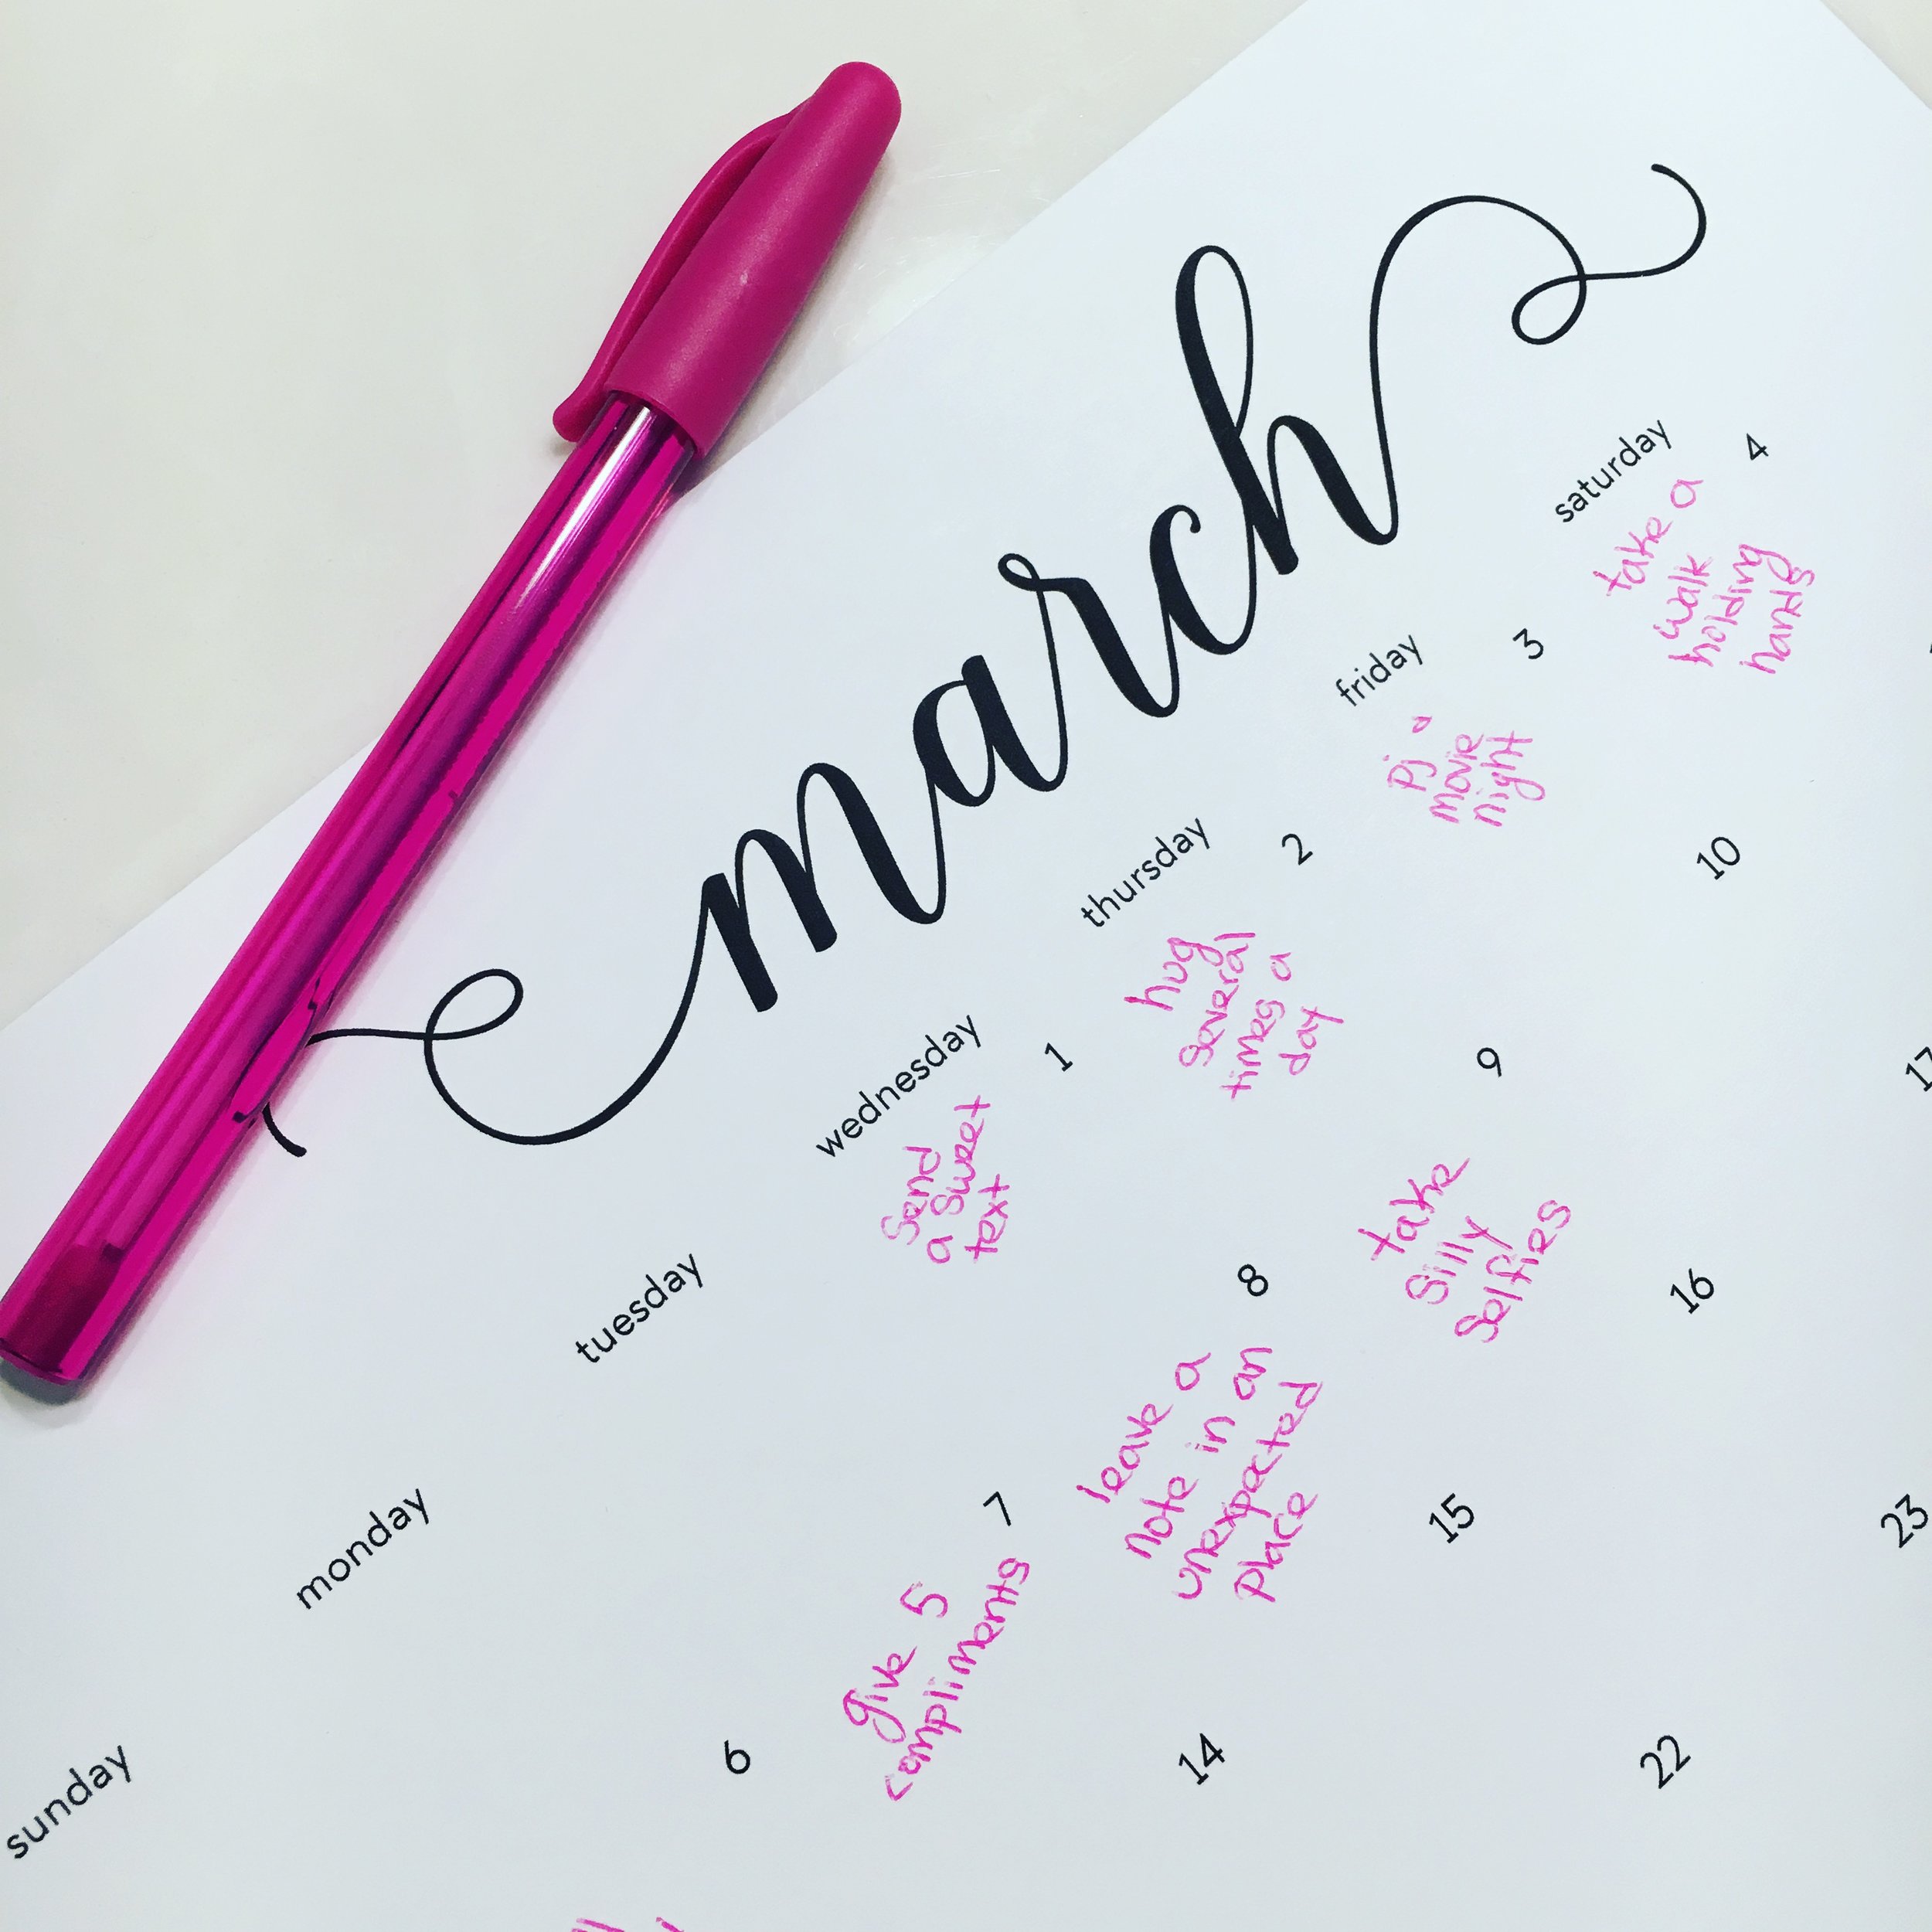 march
sunday
monday
tuesday
wednesday
thursday
friday
saturday
1
send
a sweet
text
2
hug
several
times a
day
3
pj
movie
night
4
take a
walk
holding
hands
6
7
give 5
compliments
8
leave a
note in an
unexpected
place
9
take
silly
selfies
10
14
15
16
17
22
23